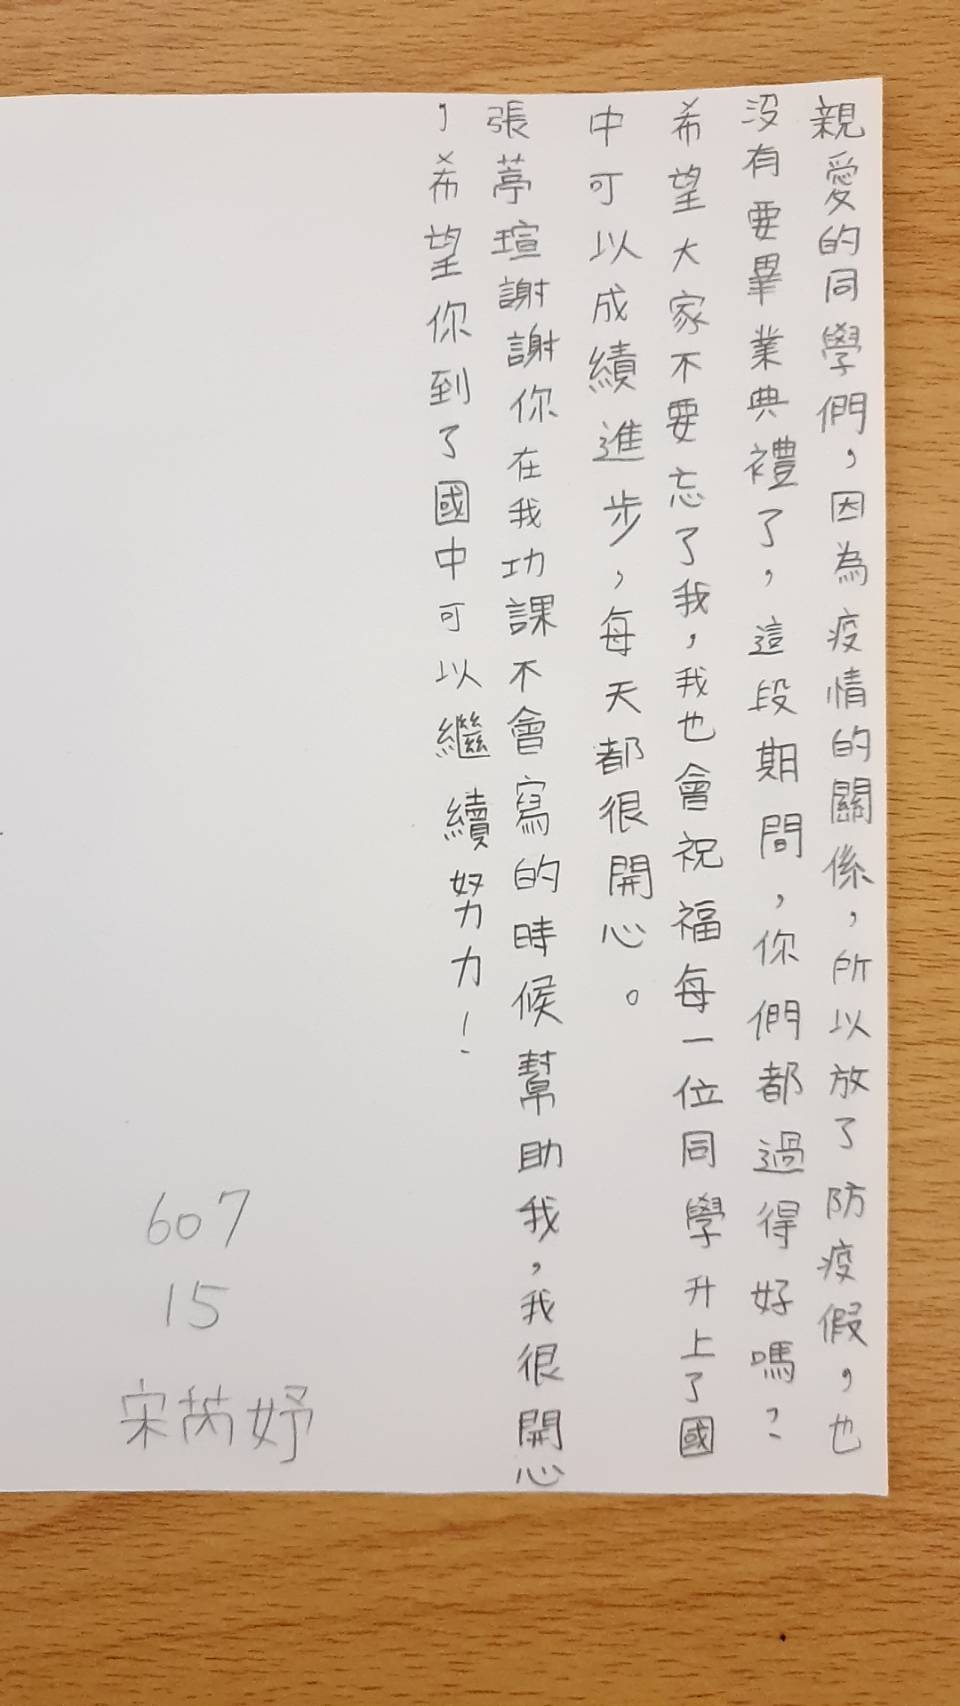 親愛的同學們，因為疫情的關係，所以放了防疫假，也
沒有要畢業典禮了，這段期間，你們都過得好嗎？
希望大家不要忘了我，我也會祝福每一位同學升上了國
中可以成績進步，每天都很開心。
張葶瑄謝謝你在我功課不會寫的時候幫助我，我很開心
，希望你到了國中可以繼續努力！
607
15
宋芮妤